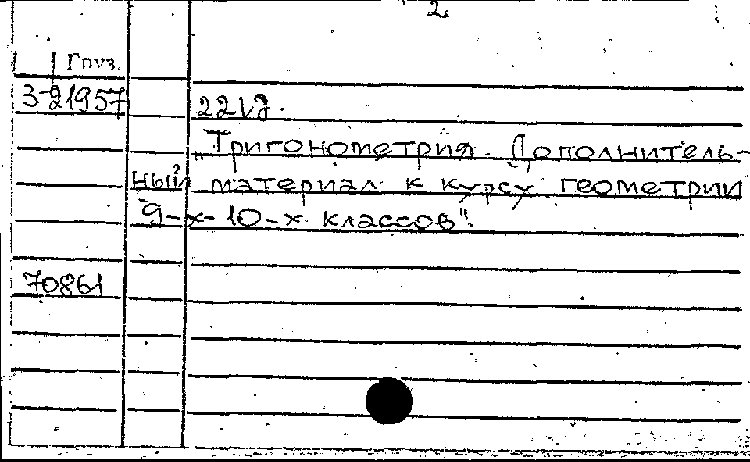 2.
Груз.
3-21957
221г.
„Тригонометрия. Дополнитель-
ный материал к курсу геометрии
9-х-10-х классов".
70861